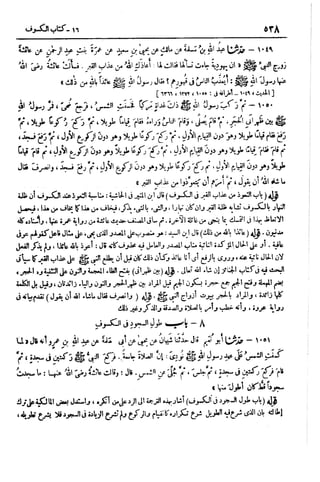 ٥٣٨ ١٦ - كتاب الكسوف
١٠٤٩ - حدثنا عبد الله بن مسلمة عن مالك عن يحيى بن سعيد عن عمرة بنت عبد الرحمن عن عائشة
زوج النبي ﷺ « أن يهودية جاءت تسألها فقالت لها : أعاذك الله من عذاب القبر . فسألت عائشة رضي الله
عنها رسول الله ﷺ : أيعذب الناس في قبورهم ؟ فقال رسول الله ﷺ عائذا بالله من ذلك »
[ الحديث ١٠٤٩ - أطرافه في : ١٠٥٥ ، ١٣٧٢ ، ٦٣٦٦ ]
١٠٥٠ - ثم ركب رسول الله ﷺ ذات غداة مركبا فخسفت الشمس ، فرجع ضحى ، فمر رسول الله
ﷺ بين ظهراني الحجر ، ثم قام يصلي ، وقام الناس وراءه فقام قياما طويلا ، ثم ركع ركوعا طويلا ، ثم
رفع فقام قياما طويلا وهو دون القيام الأول ، ثم ركع ركوعا طويلا وهو دون الركوع الأول ، ثم رفع فسجد ،
ثم قام فقام قياما طويلا وهو دون القيام الأول ، ثم ركع ركوعا طويلا وهو دون الركوع الأول ، ثم قام قياما
طويلا وهو دون القيام الأول ، ثم ركع ركوعا طويلا وهو دون الركوع الأول ، ثم رفع فسجد ، وانصرف فقال
ما شاء الله أن يقول ، ثم أمرهم أن يتعوذوا من عذاب القبر »
قوله ( باب التعوذ من عذاب القبر في الكسوف ) قال ابن المنير في الحاشية : مناسبة التعوذ عند الكسوف أن ظلمة
النهار بالكسوف تشابه ظلمة القبر وإن كان نهارا ، والشيء بالشيء يذكر ، فيخاف من هذا كما يخاف من هذا ، فيحصل
الاتعاظ بهذا في التمسك بما ينجي من غائلة الآخرة . ثم ساق المصنف حديث عائشة من رواية عمرة عنها ، وإسناده كله
مدنيون . قوله ( عائذا بالله من ذلك ) قال ابن السيد : هو منصوب على المصدر الذي يجيء على مثال فاعل كقولهم عوفي
عافية ، أو على الحال المؤكدة النائبة مناب المصدر والعامل فيه محذوف كأنه قال : أعوذ بالله عائذا ، ولم يذكر الفعل
لأن الحال نائبة عنه ، وروي بالرفع أي أنا عائذ
البحث فيه في كتاب الجنائز إن شاء الله تعالى . قوله ( بين ظهراني ) بفتح الظاء المعجمة والنون على التثنية ، والحجر
بضم المهملة وفتح الجيم جمع حجرة بسكون الجيم قيل المراد بين الحجر والنون والياء زائدتان ، وقيل بل الكلمة
كلها زائدة ، والمراد بالحجر بيوت أزواج النبي ﷺ . قوله ( وانصرف فقال ماشاء الله أن يقول ) تقدم بيانه في
رواية عروة ، وأنه خطب وأمر بالصلاة والصدقة والذكر وغير ذلك
٨ - باب طول السجود في الكسوف
١٠٥١ - حدثنا أبو نعيم قال حدثنا شيبان عن يحيى عن أبي سلمة عن عبد الله بن عمرو أنه قال « لما
كسفت الشمس على عهد رسول الله ﷺ نودي : إن الصلاة جامعة . فركع النبي ﷺ ركعتين في سجدة ، ثم
قام فركع ركعتين في سجدة ، ثم جلس ، ثم جلي عن الشمس . قال : وقالت عائشة رضي الله عنها : ما سجدت
سجودا قط كان أطول منها »
قوله ( باب طول السجود في الكسوف ) أشار بهذه الترجمة إلى الرد على من أنكره ، واستدل بعض المالكية على ترك
إطالته بأن الذي شرع فيه التطويل شرع تكراره كالقيام والركوع ولم تشرع الزيادة في السجود فلا يشرع تطويله ،